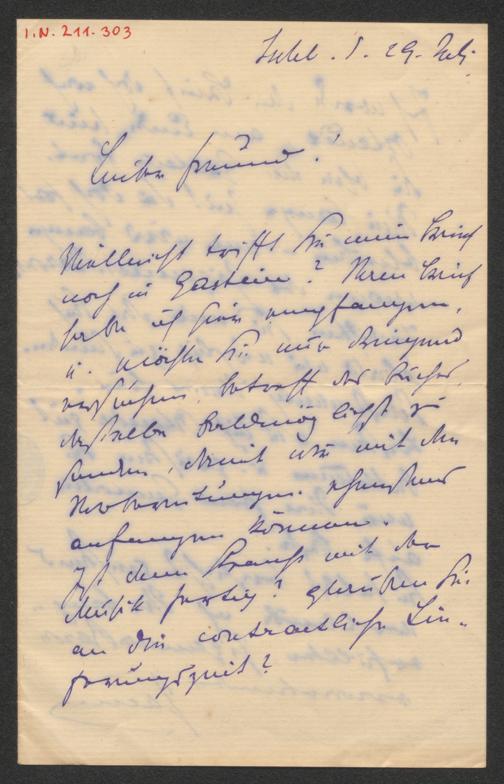 I.N. 211.303
Ischl. d. 29. Juli
Lieber Freund!
Vielleicht trifft Sie mein Brief
noch in Gastein? Ihren Brief
habe ich hier empfangen,
u. möchte Sie nur dringend
ersuchen, betreff der Bücher,
dieselbe baldmöglichst zu
senden, damit wir mit den
Vorbereitungen
anfangen können.
Ist denn Strauss mit der
Musik fertig? glauben Sie
an die contractliche Lie-
ferungszeit?